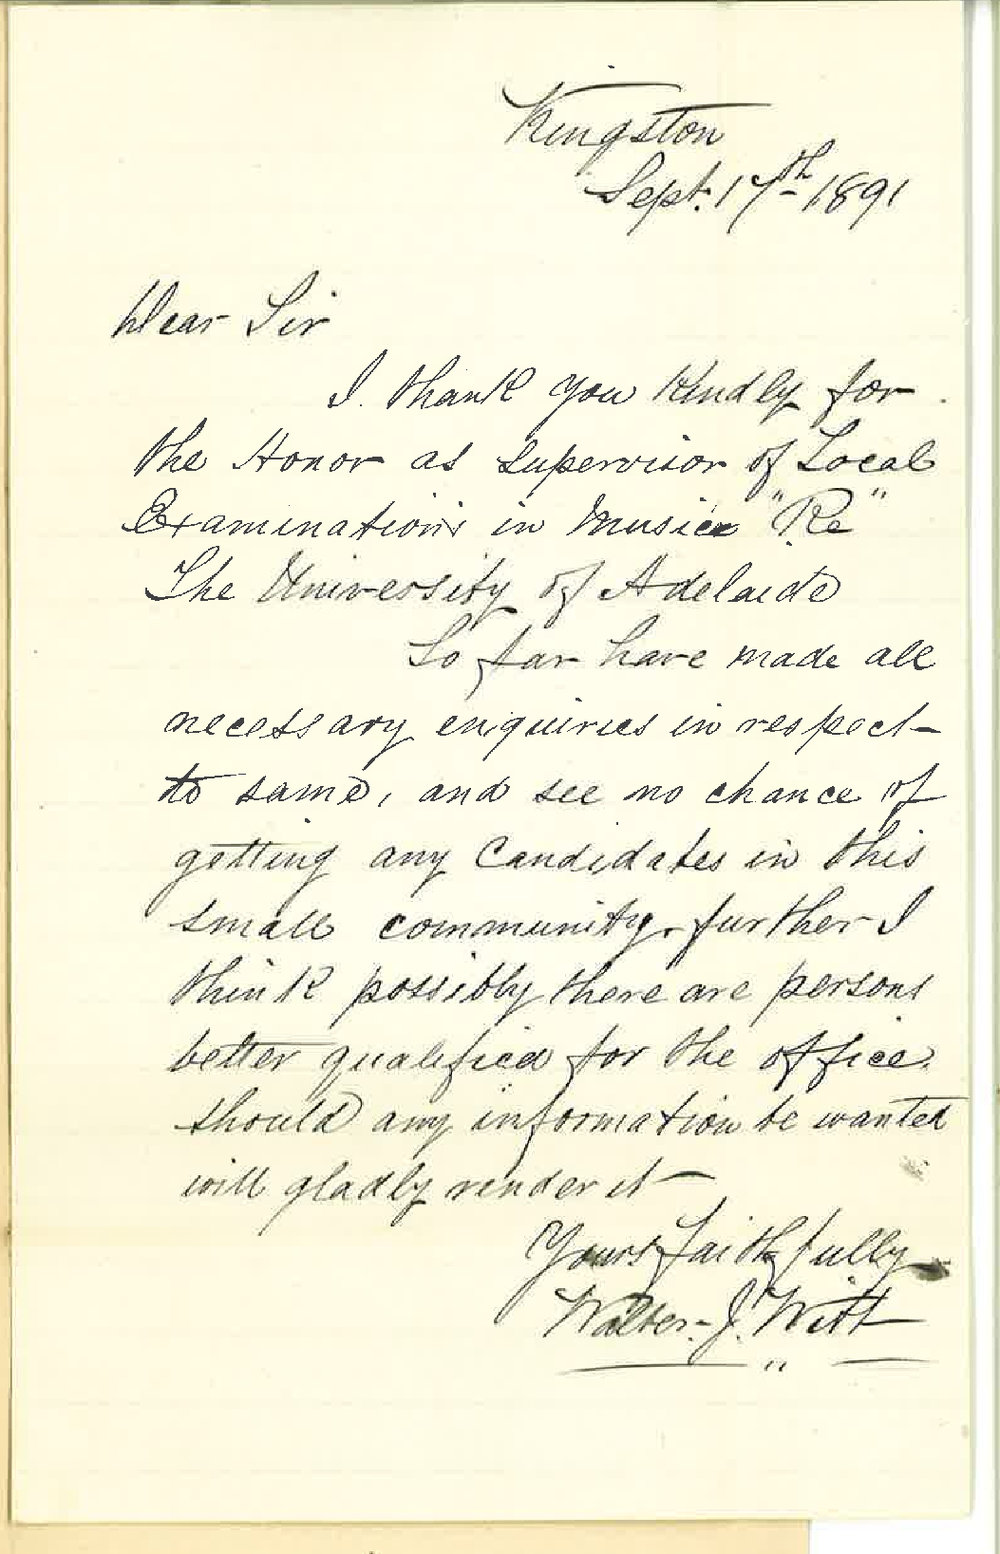 Kingston
Sept. 17th 1891
Dear Sir
I thank you kindly for
the Honor as supervisor of Local
Examinations in Music "Re"
The University of Adelaide
So far have made all
necessary enquiries in respect
to same, and see no chance of
getting any Candidates in this
small community, further I
think possibly there are persons
better qualified for the office.
should any information be wanted
will gladly render it
Yours faithfully
Walter. J. Witt